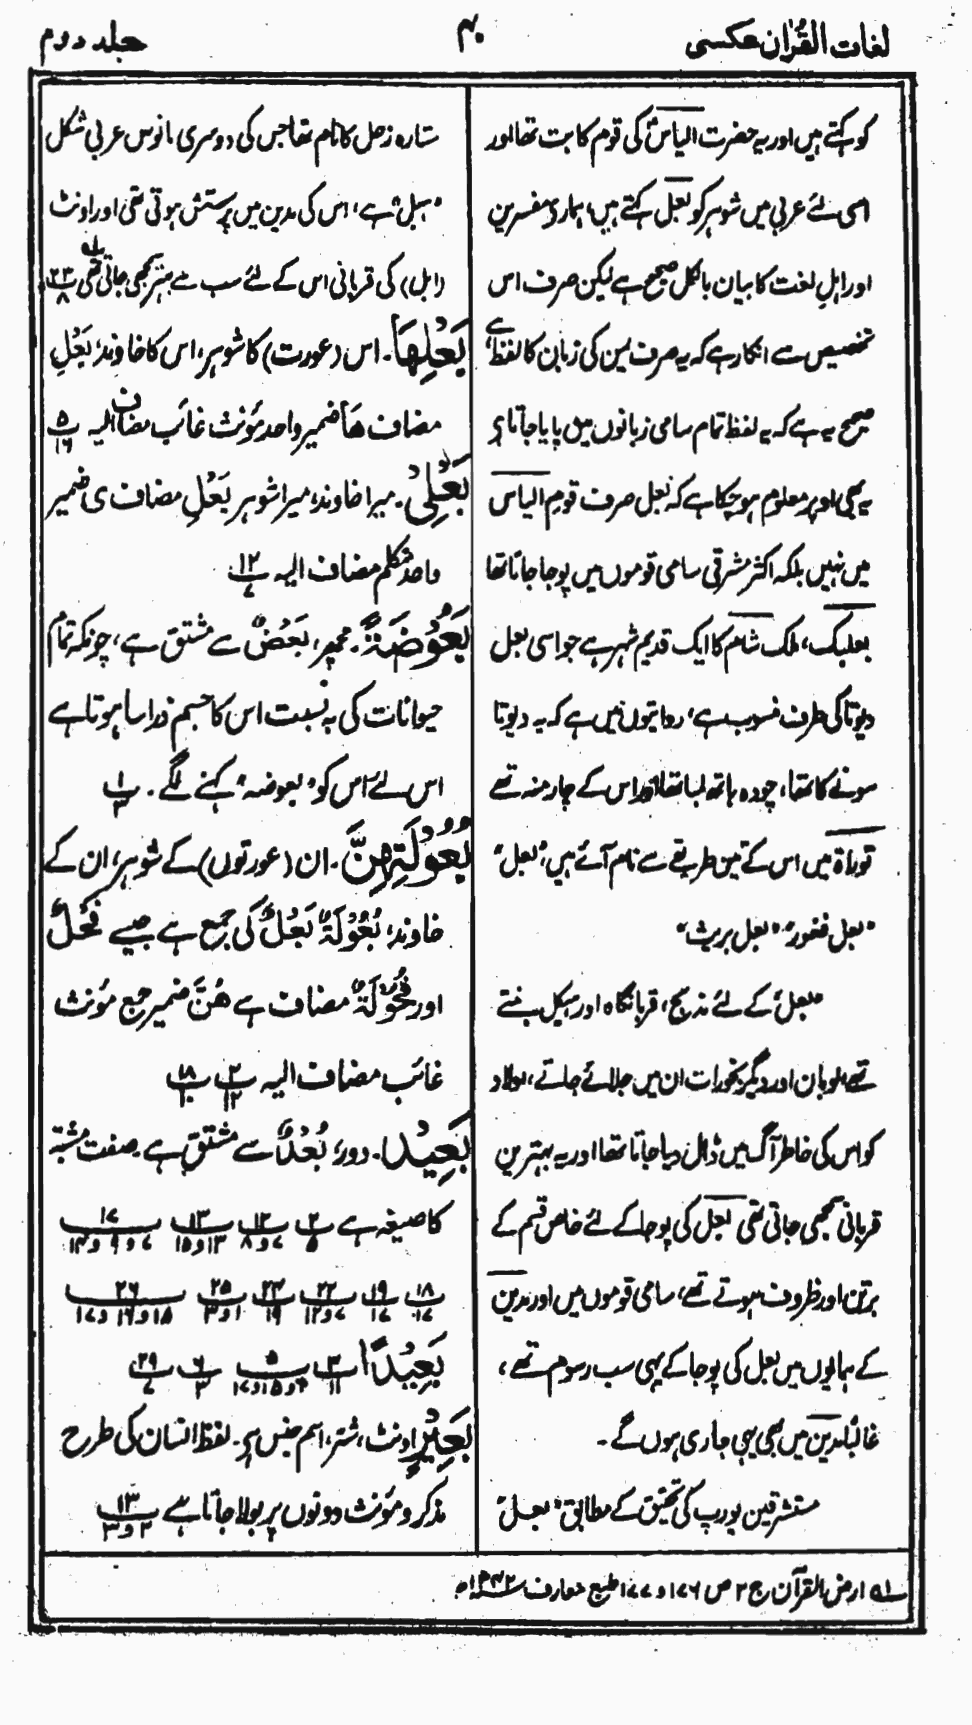 لغات القرآن عکسی
۴۰
جلد دوم
کو کہتے ہیں اور یہ حضرت الیاسؑ کی قوم کا بت تھا اور
اسی لئے عربی میں شوہر کو بعل کہتے ہیں، ہمارے مفسرین
اور اہلِ لغت کا بیان بالکل صحیح ہے لیکن صرف اس
تخصیص سے انکار ہے کہ یہ صرف یمن کی زبان کا لفظ ہے
صحیح یہ ہے کہ یہ لفظ تمام سامی زبانوں میں پایا جاتا ہے
یہ بھی اوپر معلوم ہو چکا ہے کہ بعل صرف قومِ الیاس
میں نہیں بلکہ اکثر مشرقی سامی قوموں میں پوجا جاتا تھا
بعلبک، ملک شام کا ایک قدیم شہر ہے جو اسی بعل
دیوتا کی طرف منسوب ہے، روایتوں میں ہے کہ یہ دیوتا
سونے کا تھا، چودہ ہاتھ لمبا تھا اور اس کے چار منہ تھے
توراۃ میں اس کے تین طریقے سے نام آئے ہیں "بعل"
"بعل فغور" "بعل بریث"
"بعل" کے لئے مذبح، قربانگاہ اور ہیکل بنتے
تھے، لوبان اور دیگر بخورات ان میں جلائے جاتے، اولاد
کو اس کی خاطر آگ میں ڈال دیا جاتا تھا اور یہ بہترین
قربانی سمجھی جاتی تھی بعل کی پوجا کے لئے خاص قسم کے
برتن اور ظروف ہوتے تھے، سامی قوموں میں اور مدین
کے ہمایوں میں بعل کی پوجا کے یہی سب رسوم تھے،
غالبًا مدین میں بھی یہی جاری ہوں گے۔
مستشرقین یورپ کی تحقیق کے مطابق "بعل"
ستارہ زحل کا نام تھا جس کی دوسری مانوس عربی شکل
"ہبل" ہے، اس کی مدین میں پرستش ہوتی تھی اور اونٹ
(ابل) کی قربانی اس کے لئے سب سے بہتر سمجھی جاتی تھی ؎۱ ۲۳/۸
بَعْلِھَا۔ اس (عورت) کا شوہر، اس کا خاوند، بَعْلِ
مضاف ھَا ضمیر واحد مؤنث غائب مضاف الیہ ۵/۱۶
بَعْلِیْ۔ میرا خاوند، میرا شوہر بَعْلِ مضاف ی ضمیر
واحد متکلم مضاف الیہ ۱۲/۷
بَعُوْضَۃً۔ مچھر، بَعْضٌ سے مشتق ہے، چونکہ تمام
حیوانات کی بہ نسبت اس کا جسم ذرا سا ہوتا ہے
اس لئے اس کو "بعوضہ" کہنے لگے۔ ۱/۳
بُعُوْلَتِھِنَّ۔ ان (عورتوں) کے شوہر، ان کے
خاوند، بُعُوْلَۃٌ بَعْلٌ کی جمع ہے جیسے فَحْلٌ
اور فُحُوْلَۃٌ مضاف ہے ھُنَّ ضمیر جمع مؤنث
غائب مضاف الیہ ۲/۱۲ ۱۸/۱۰
بَعِیْدٌ۔ دور، بُعْدٌ سے مشتق ہے۔ صفت مشبّہ
کا صیغہ ہے ۲/۵ ۱۲/۷و۸ ۱۳/۱۳و۱۵ ۱۷/۷و۹و۱۴
۱۸/۱۷ ۱۹/۱۷ ۲۲/۷و۱۲ ۲۳/۱۹ ۲۵/۱و۳ ۲۶/۱۵و۱۶و۱۷
بَعِیْدًا ۳/۱۱ ۵/۴و۱۵و۱۷ ۶/۳ ۲۹/۷
بَعِیْرٍ اونٹ، شتر، اسم جنس ہے۔ لفظ انسان کی طرح
مذکر و مؤنث دونوں پر بولا جاتا ہے ۱۳/۲و۳
؎۱ ارض القرآن ج ۲ ص ۱۷۶ و ۱۷۷ طبع معارف ۱۳۴۲ھ